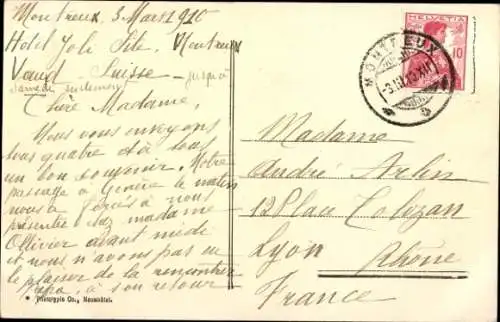 Montreux, 3 Mars 1910
Hôtel Joli Site, Montreux
Vaud - Suisse - jusqu'à
Samedi seulement
Chère Madame,
Nous vous envoyons
tous quatre à tous
un bon souvenir. Notre
passage à Genève le matin
nous a forcés à nous
présenter chez madame
Ollivier avant midi
et nous n'avons pas eu
le plaisir de la rencontrer
Papa, à son retour
* Phototypie Co., Neuchâtel.
HELVETIA
10
MONTREUX
-3.III.10.XII
Madame
André Arlin
12 Place Tolozan
Lyon
Rhône
France